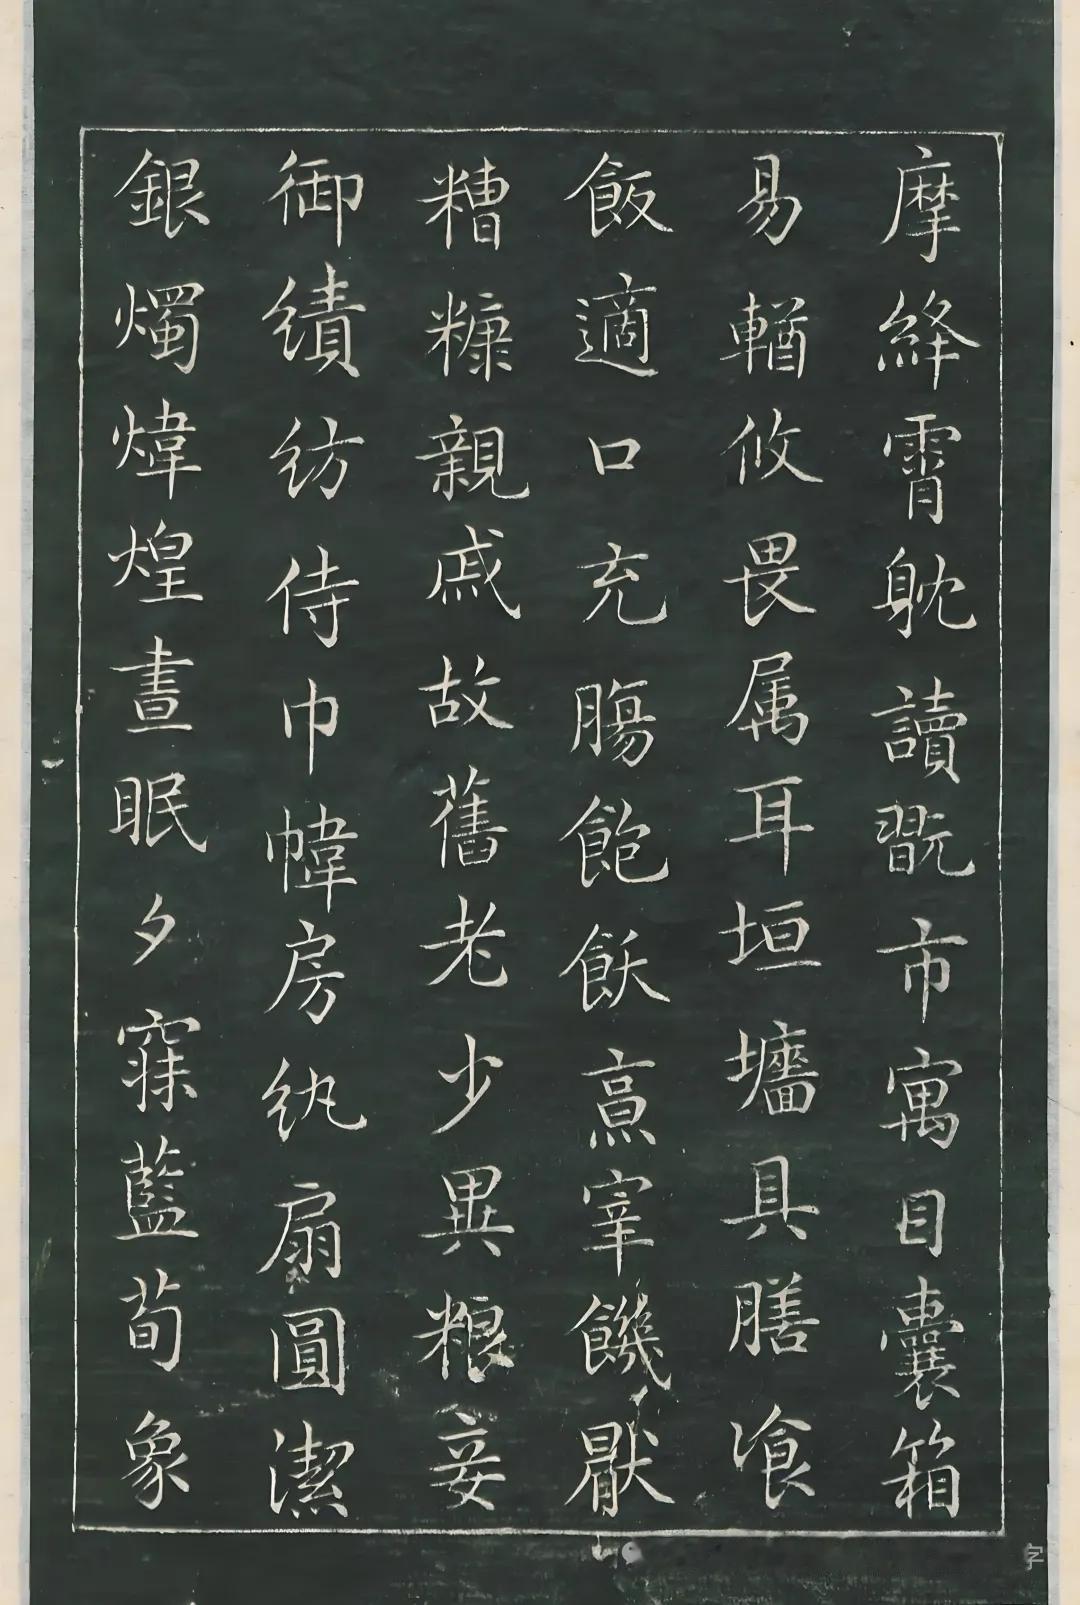 摩絳霄躭讀翫市寓目囊箱
易輶攸畏属耳垣墻具膳飡
飯適口充腸飽飫烹宰饑厭
糟糠親戚故舊老少異粮妾
御績紡侍巾幃房紈扇圓潔
銀燭煒煌晝眠夕寐藍荀象
字